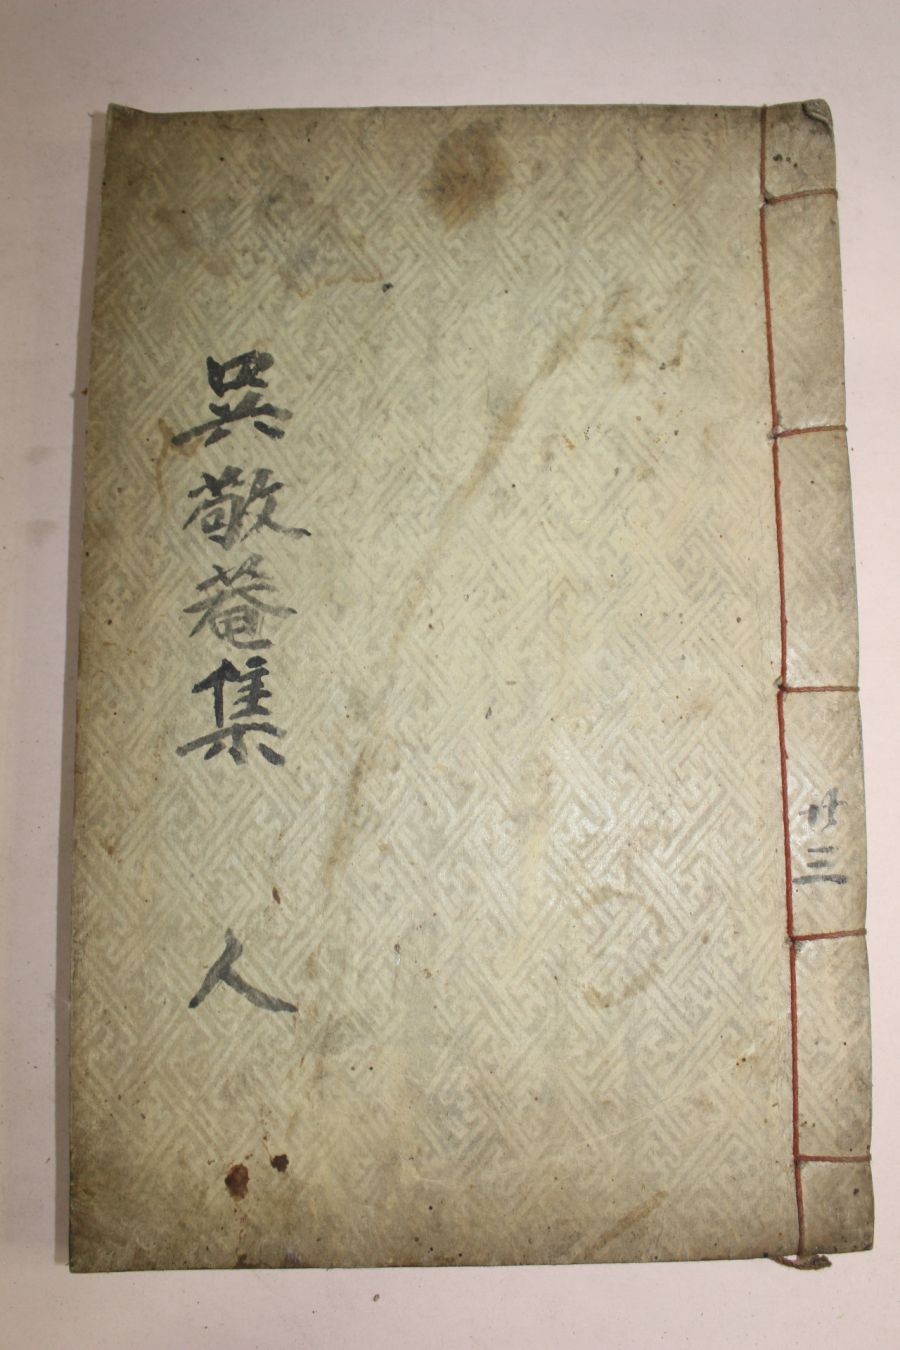 吳敬菴集 人
廾三